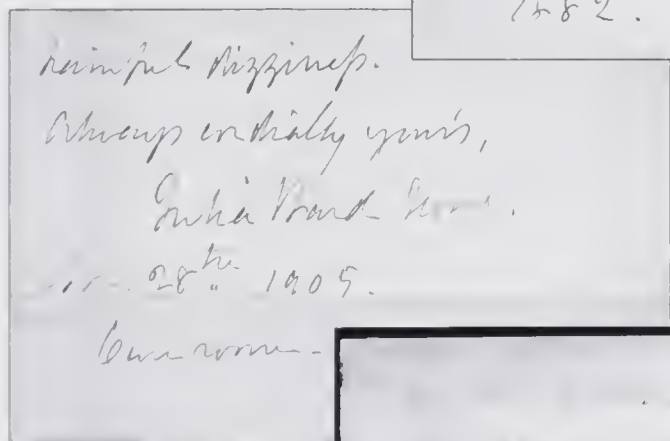 1882.
painful dizziness.
Always cordially yours,
Julia Ward
28th 1905.